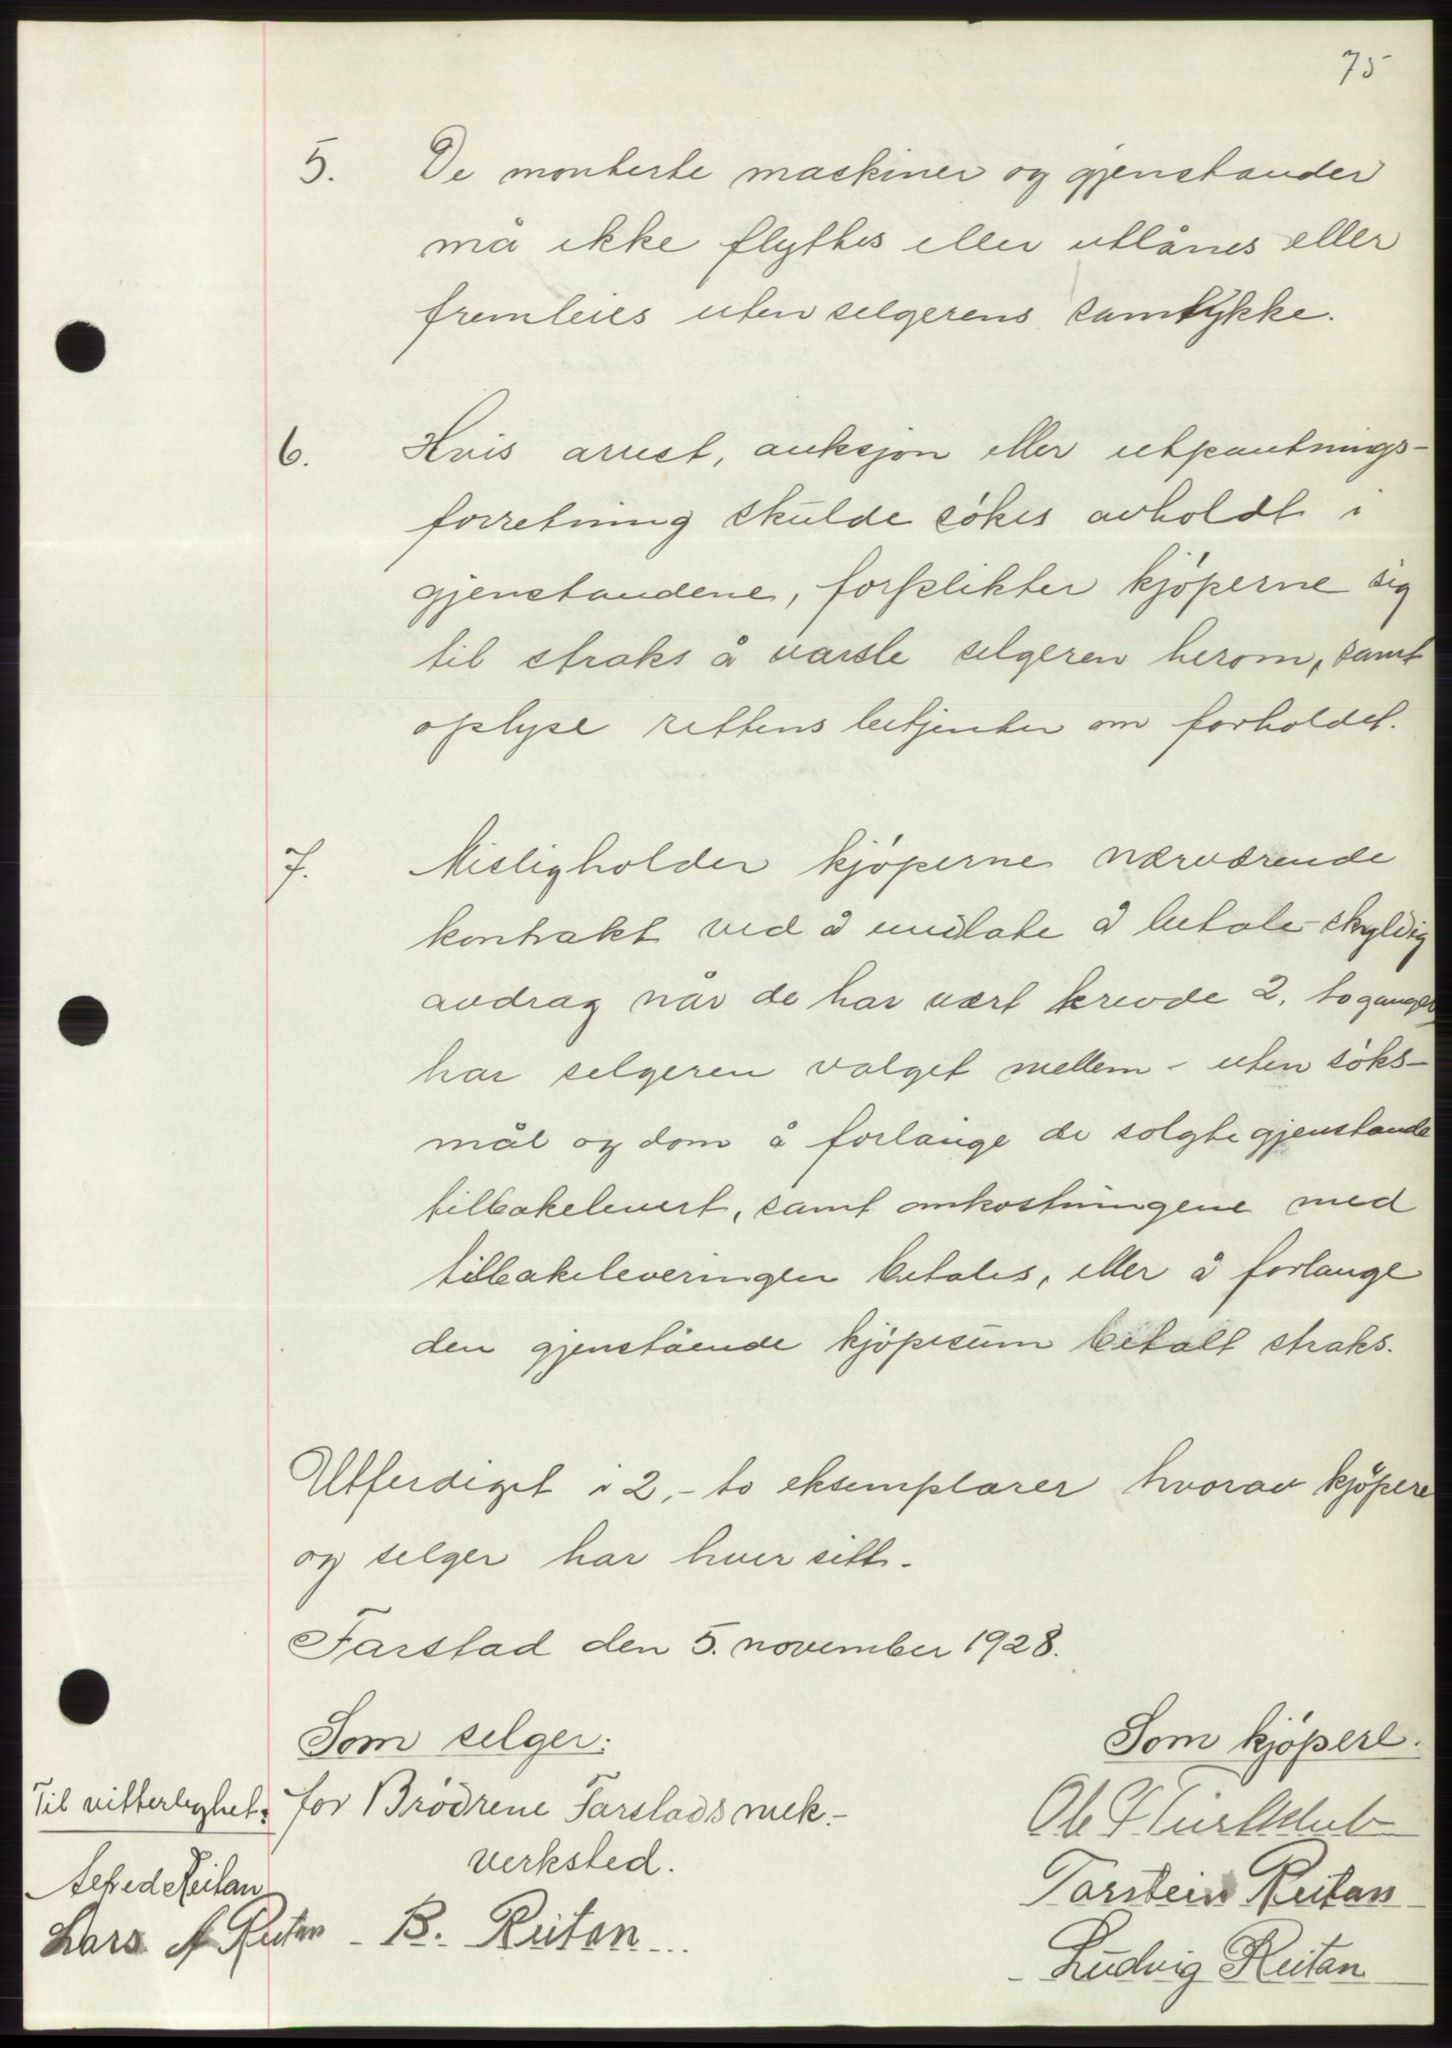 75
5. De monterte maskiner og gjenstander
må ikke flyttes eller utlånes eller
fremleies uten selgerens samtykke.
6. Hvis arrest, auksjon eller utpantnings-
forretning skulde sökes avholdt i
gjenstandene, forplikter kjöperne sig
til straks å varsle selgeren herom, samt
oplyse rettens betjenter om forholdet.
7. Misligholder kjöperne nærværende
kontrakt ved å undlate å betale skyldig
avdrag når de har vært krevde 2, to ganger
har selgeren valget mellem - uten söks-
mål og dom å forlange de solgte gjenstande
tilbakelevert, samt omkostningene med
tilbakeleveringen betales, eller å forlange
den gjenstående kjöpesum betalt straks.
Utferdiget i 2,- to eksemplarer hvorav kjöpere
og selger har hver sitt.
Farstad den 5. november 1928.
Som selger:
Som kjöpere.
Til vitterlighet:
for Brödrene Farstads mek.-
verksted.
B. Reitan
Alfred Reitan
Lars A Reitan
Ole
Torstein Reitan
Ludvig Reitan